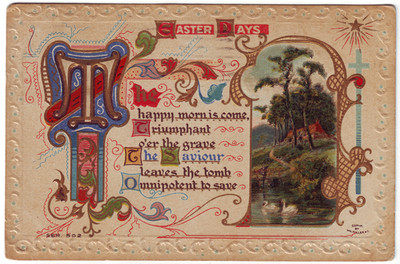 EASTER DAYS
The
happy morn is come,
Triumphant
o'er the grave
The Saviour
leaves the tomb
Omnipotent to save